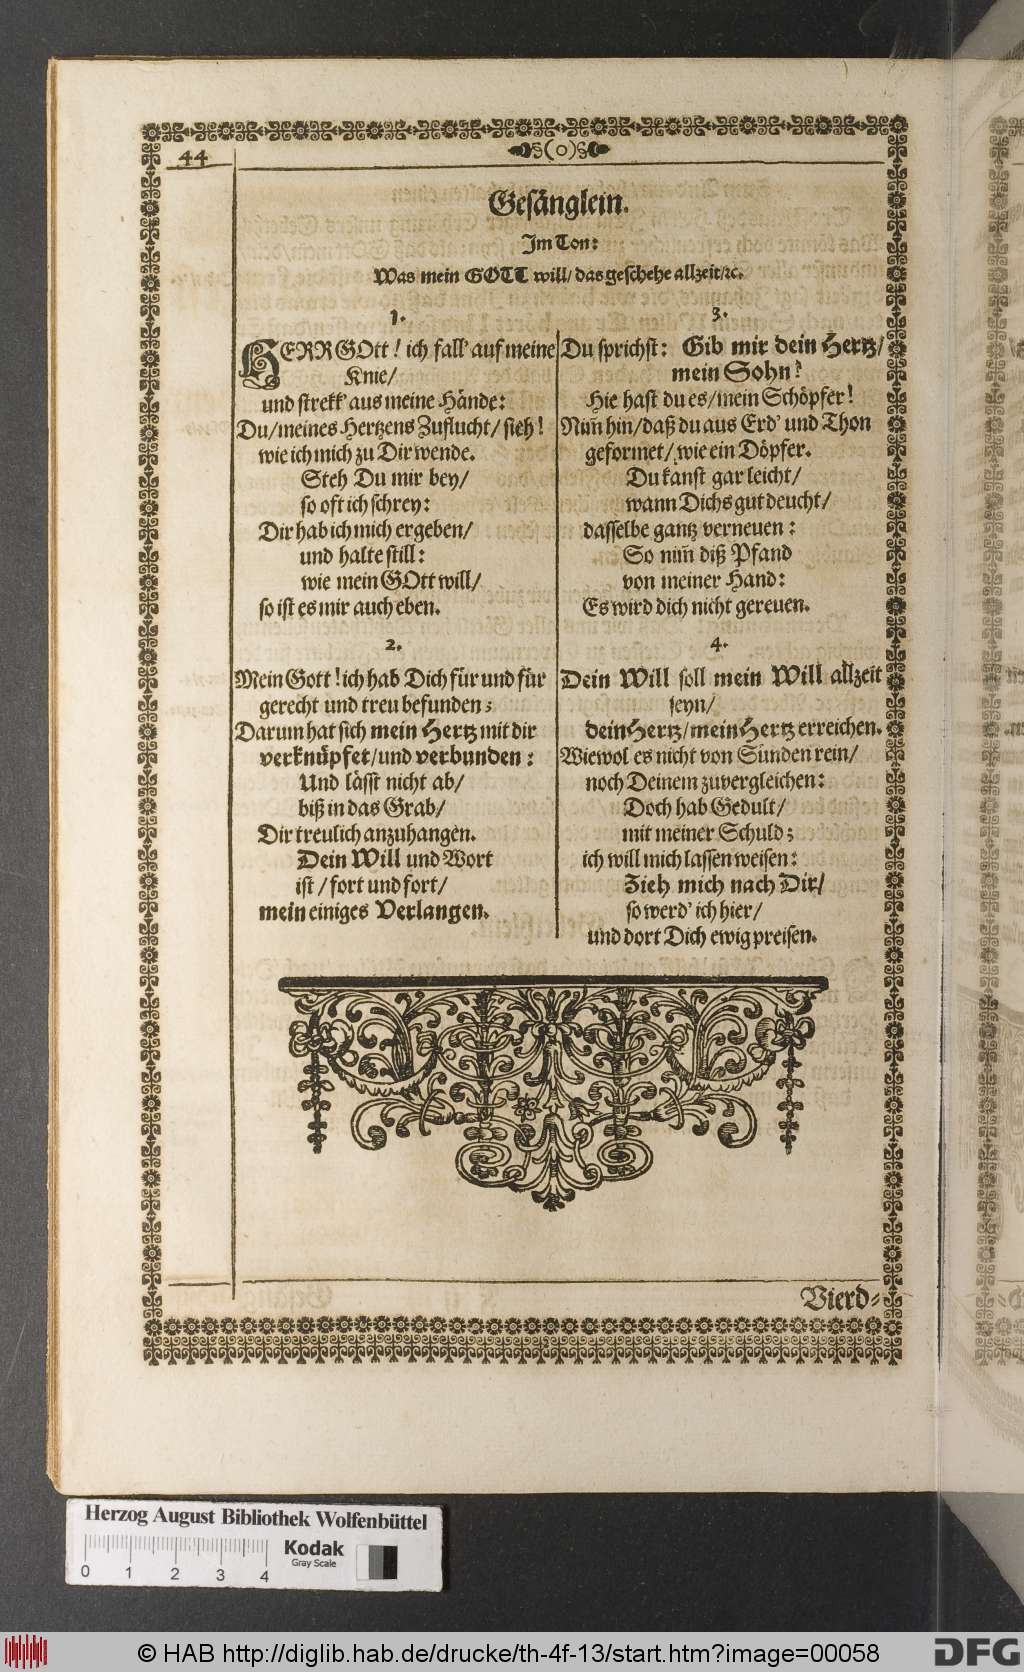 44
§(o)§
Gesänglein.
Im Ton:
Was mein GOTT will/ das geschehe allzeit/ꝛc.
1.
HERR GOtt! ich fall' auf meine
Knie/
und strekk' aus meine Hände:
Du/ meines Hertzens Zuflucht/ sieh!
wie ich mich zu Dir wende.
Steh Du mir bey/
so oft ich schrey:
Dir hab ich mich ergeben/
und halte still:
wie mein GOtt will/
so ist es mir auch eben.
2.
Mein Gott! ich hab Dich für und für
gerecht und treu befunden;
Darum hat sich mein Hertz mit dir
verknüpfet/ und verbunden:
Und lässt nicht ab/
biß in das Grab/
Dir treulich anzuhangen.
Dein Will und Wort
ist/ fort und fort/
mein einiges Verlangen.
3.
Du sprichst: Gib mir dein Hertz/
mein Sohn?
Hie hast du es/ mein Schöpfer!
Nim̃ hin/ daß du aus Erd' und Thon
geformet/ wie ein Döpfer.
Du kanst gar leicht/
wann Dichs gut deucht/
dasselbe gantz verneuen:
So nim̃ diß Pfand
von meiner Hand:
Es wird dich nicht gereuen.
4.
Dein Will soll mein Will allzeit
seyn/
dein Hertz/ mein Hertz erreichen.
Wiewol es nicht von Sünden rein/
noch Deinem zuvergleichen:
Doch hab Gedult/
mit meiner Schuld;
ich will mich lassen weisen:
Zieh mich nach Dir/
so werd' ich hier/
und dort Dich ewig preisen.
Vierd⸗
Herzog August Bibliothek Wolfenbüttel
Kodak
Gray Scale
0 1 2 3 4
© HAB http://diglib.hab.de/drucke/th-4f-13/start.htm?image=00058
DFG